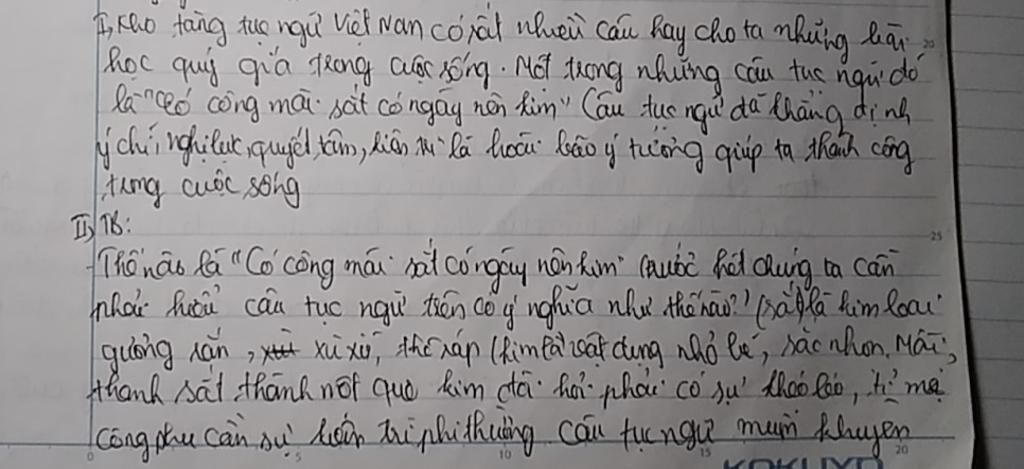 I, Kho tàng tục ngữ Việt Nam có rất nhiều câu hay cho ta những bài
học quý giá trong cuộc sống. Một trong những câu tục ngữ đó
là "Có công mài sắt có ngày nên kim" Câu tục ngữ đã khẳng định
ý chí, nghị lực, quyết tâm, kiên trì là hoài bão ý tưởng giúp ta thành công
trong cuộc sống
II, TB:
- Thế nào là "Có công mài sắt có ngày nên kim" trước hết chúng ta cần
phải hiểu câu tục ngữ trên có ý nghĩa như thế nào? sắt là kim loại
cứng rắn, xù xì, thô ráp kim là vật dụng nhỏ bé, sắc nhọn. Mài
thanh sắt thành một que kim đòi hỏi phải có sự khéo léo, tỉ mỉ
công phu cần sự kiên trì phi thường câu tục ngữ muốn khuyên
0 5 10 15 20
25
KOKUYO